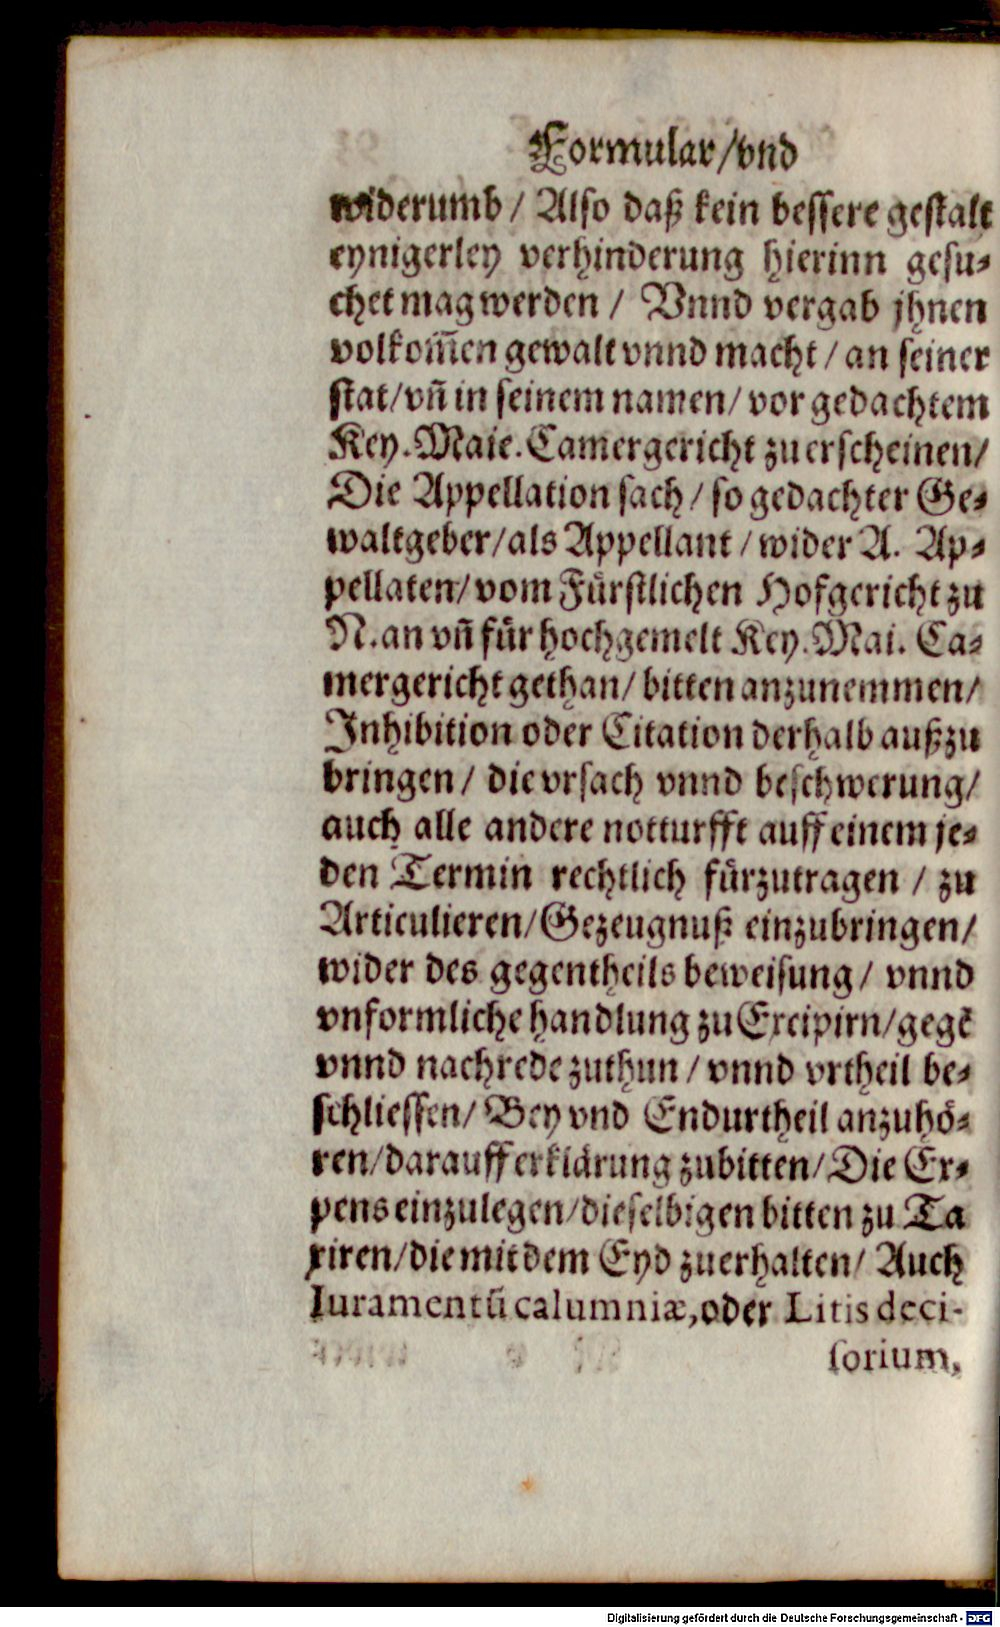 Formular/vnd
widerumb/ Also daß kein bessere gestalt
eynigerley verhinderung hierinn gesu-
chet mag werden/ Vnnd vergab jhnen
volkom̄en gewalt vnnd macht/ an seiner
stat/vn̄ in seinem namen/ vor gedachtem
Key. Maie. Camergericht zu erscheinen/
Die Appellation sach/ so gedachter Ge-
waltgeber/als Appellant/ wider A. Ap-
pellaten/ vom Fürstlichen Hofgericht zu
N. an vn̄ für hochgemelt Key. Mai. Ca-
mergericht gethan/ bitten anzunemmen/
Inhibition oder Citation derhalb außzu
bringen/ die vrsach vnnd beschwerung/
auch alle andere notturfft auff einem je-
den Termin rechtlich fürzutragen/ zu
Articulieren/Gezeugnuß einzubringen/
wider des gegentheils beweisung/ vnnd
vnformliche handlung zu Excipirn/gegē
vnnd nachrede zuthun/ vnnd vrtheil be-
schliessen/ Bey vnd Endurtheil anzuhö-
ren/darauff erklärung zubitten/Die Ex-
pens einzulegen/dieselbigen bitten zu Ta
xiren/die mit dem Eyd zuerhalten/ Auch
Iuramentū calumniæ,oder Litis deci-
sorium,
Digitalisierung gefördert durch die Deutsche Forschungsgemeinschaft - DFG